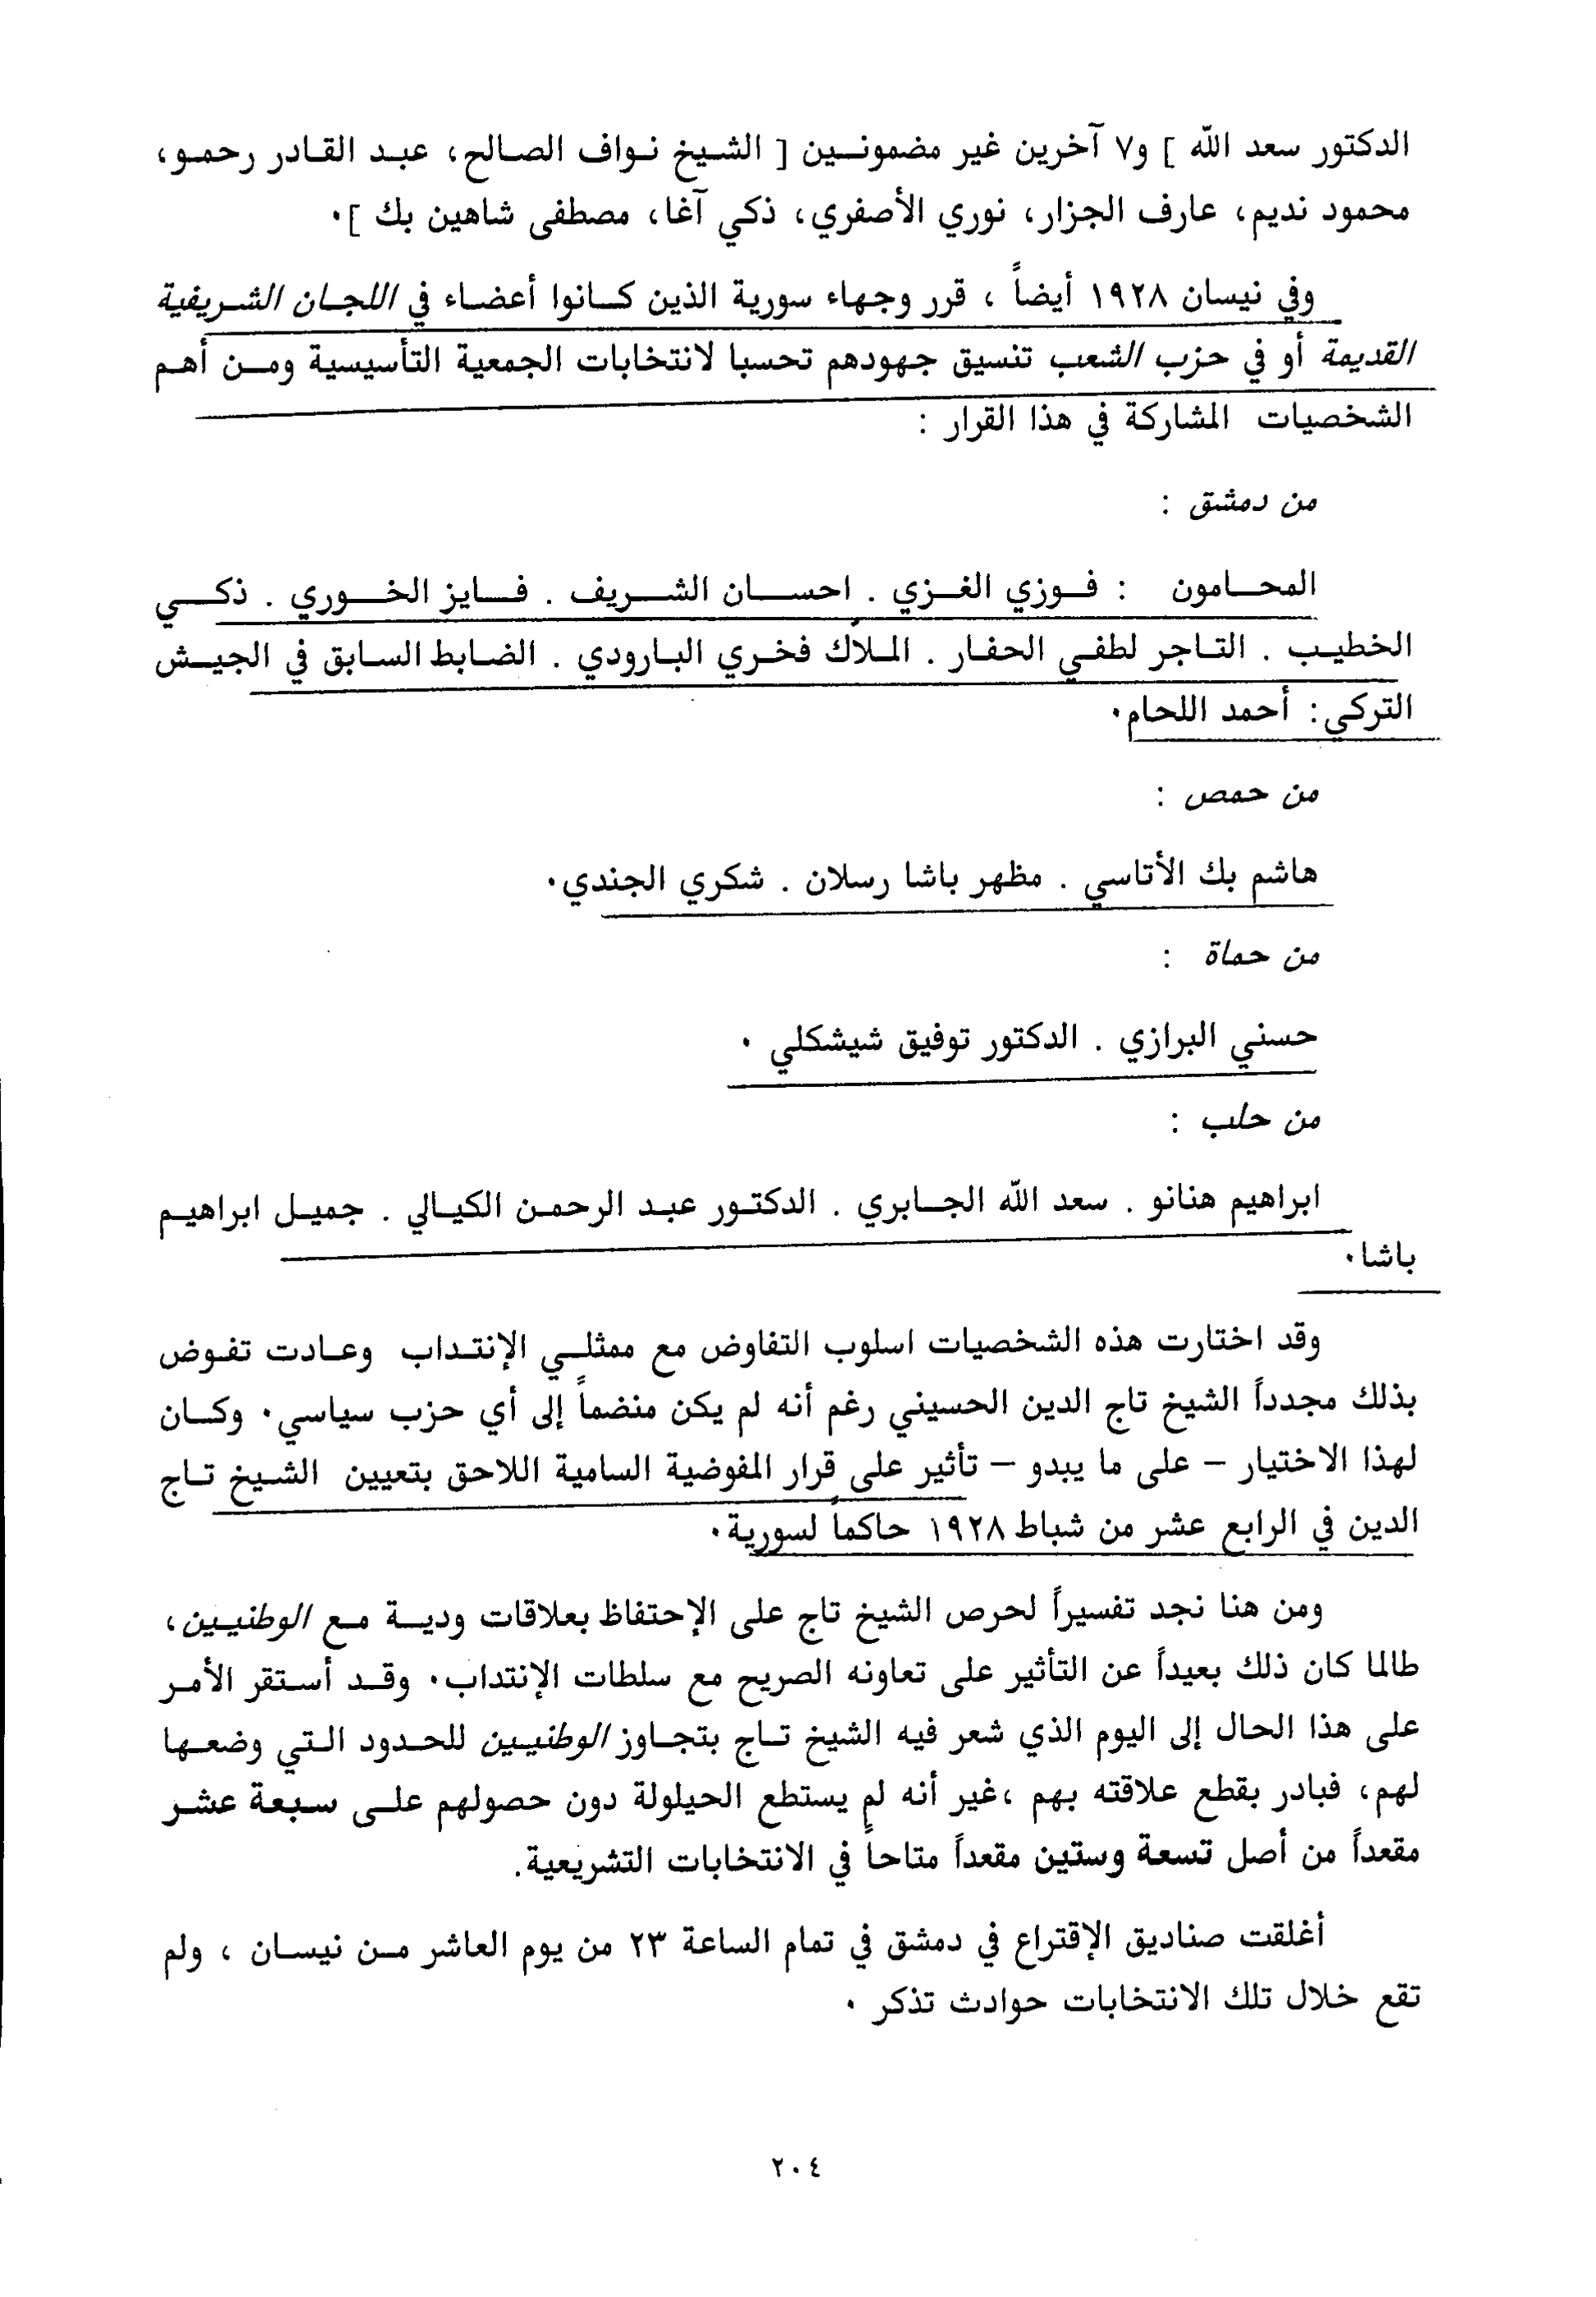 الدكتور سعد الله ] و٧ آخرين غير مضمونــين [ الشـيخ نـواف الصـالح، عبـد القـادر رحمـو،
محمود نديم، عارف الجزار، نوري الأصفري، ذكي آغا، مصطفى شاهين بك ]٠
وفي نيسان ١٩٢٨ أيضاً ، قرر وجهاء سورية الذين كـانوا أعضـاء في اللجـان الشـريفية
القديمة أو في حزب الشعب تنسيق جهودهم تحسبا لانتخابات الجمعية التأسيسية ومـن أهـم
الشخصيات المشاركة في هذا القرار :
من دمشق :
المحـامون : فـوزي الغـزي . احسـان الشـريف . فـايز الخـوري . ذكـي
الخطيـب . التـاجر لطفـي الحفـار . المـلاّك فخـري البـارودي . الضـابط السـابق في الجيـش
التركي: أحمد اللحام٠
من حمص :
هاشم بك الأتاسي . مظهر باشا رسلان . شكري الجندي٠
من حماة :
حسني البرازي . الدكتور توفيق شيشكلي ٠
من حلب :
ابراهيم هنانو . سعد الله الجـابري . الدكتـور عبـد الرحمـن الكيـالي . جميـل ابراهيـم
باشا٠
وقد اختارت هذه الشخصيات اسلوب التفاوض مع ممثلـي الإنتـداب وعـادت تفـوض
بذلك مجدداً الشيخ تاج الدين الحسيني رغم أنه لم يكن منضماً إلى أي حزب سياسي٠ وكـان
لهذا الاختيار – على ما يبدو – تأثير على قرار المفوضية السامية اللاحق بتعيين الشـيخ تـاج
الدين في الرابع عشر من شباط ١٩٢٨ حاكماً لسورية٠
ومن هنا نجد تفسيراً لحرص الشيخ تاج على الإحتفاظ بعلاقات وديـة مـع الوطنيـين،
طالما كان ذلك بعيداً عن التأثير على تعاونه الصريح مع سلطات الإنتداب٠ وقـد أستقر الأمـر
على هذا الحال إلى اليوم الذي شعر فيه الشيخ تـاج بتجـاوز الوطنيـين للحـدود الـتي وضعـها
لهم، فبادر بقطع علاقته بهم ،غير أنه لم يستطع الحيلولة دون حصولهم علـى سـبعة عشـر
مقعداً من أصل تسعة وستين مقعداً متاحاً في الانتخابات التشريعية.
أغلقت صناديق الإقتراع في دمشق في تمام الساعة ٢٣ من يوم العاشر مـن نيسـان ، ولم
تقع خلال تلك الانتخابات حوادث تذكر ٠
٢٠٤